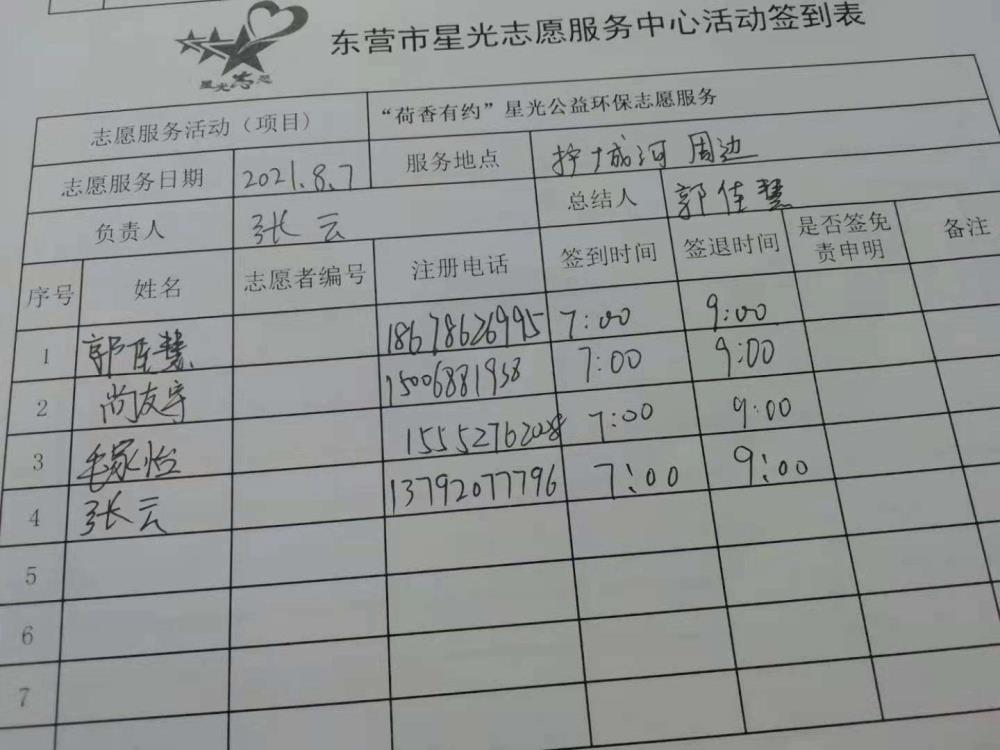 星光志愿
东营市星光志愿服务中心活动签到表
志愿服务活动（项目） “荷香有约”星光公益环保志愿服务
志愿服务日期 2021.8.7 服务地点 护城河周边
负责人 张云 总结人 郭佳慧
序号 姓名 志愿者编号 注册电话 签到时间 签退时间 是否签免责申明 备注
1 郭佳慧 18678626995 7:00 9:00
2 尚友宇 15006881938 7:00 9:00
3 毛家怡 7:00 9:00
4 张云 13792077796 7:00 9:00
5
6
7